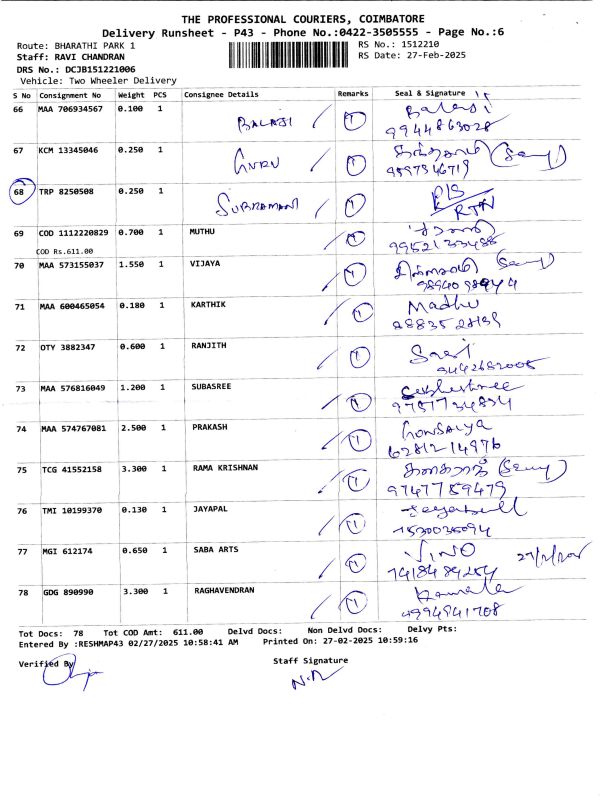 THE PROFESSIONAL COURIERS, COIMBATORE
Delivery Runsheet - P43 - Phone No.:0422-3505555 - Page No.:6
Route: BHARATHI PARK 1 RS No.: 1512210
Staff: RAVI CHANDRAN RS Date: 27-Feb-2025
DRS No.: DCJB151221006
Vehicle: Two Wheeler Delivery
S No Consignment No Weight PCS Consignee Details Remarks Seal & Signature
66 MAA 706934567 0.100 1 BALAJI 1 Balaji
9944863028
67 KCM 13345046 0.250 1 GURU 1
68 TRP 8250508 0.250 1 SUBRAMANI 1 RTN
69 COD 1112220829 0.700 1 MUTHU 1
COD Rs.611.00
70 MAA 573155037 1.550 1 VIJAYA 1
71 MAA 600465054 0.180 1 KARTHIK 1 Madhu
72 OTY 3882347 0.600 1 RANJITH 1
73 MAA 576816049 1.200 1 SUBASREE 1
9787734834
74 MAA 574767081 2.500 1 PRAKASH 1 Gowsalya
6281214976
75 TCG 41552158 3.300 1 RAMA KRISHNAN 1
9747759479
76 TMI 10199370 0.130 1 JAYAPAL 1
77 MGI 612174 0.650 1 SABA ARTS 1 VINO
78 GDG 890990 3.300 1 RAGHAVENDRAN 1 Kamala
4994941708
Tot Docs: 78 Tot COD Amt: 611.00 Delvd Docs: Non Delvd Docs: Delvy Pts:
Entered By :RESHMAP43 02/27/2025 10:58:41 AM Printed On: 27-02-2025 10:59:16
Verified By Staff Signature
N.R